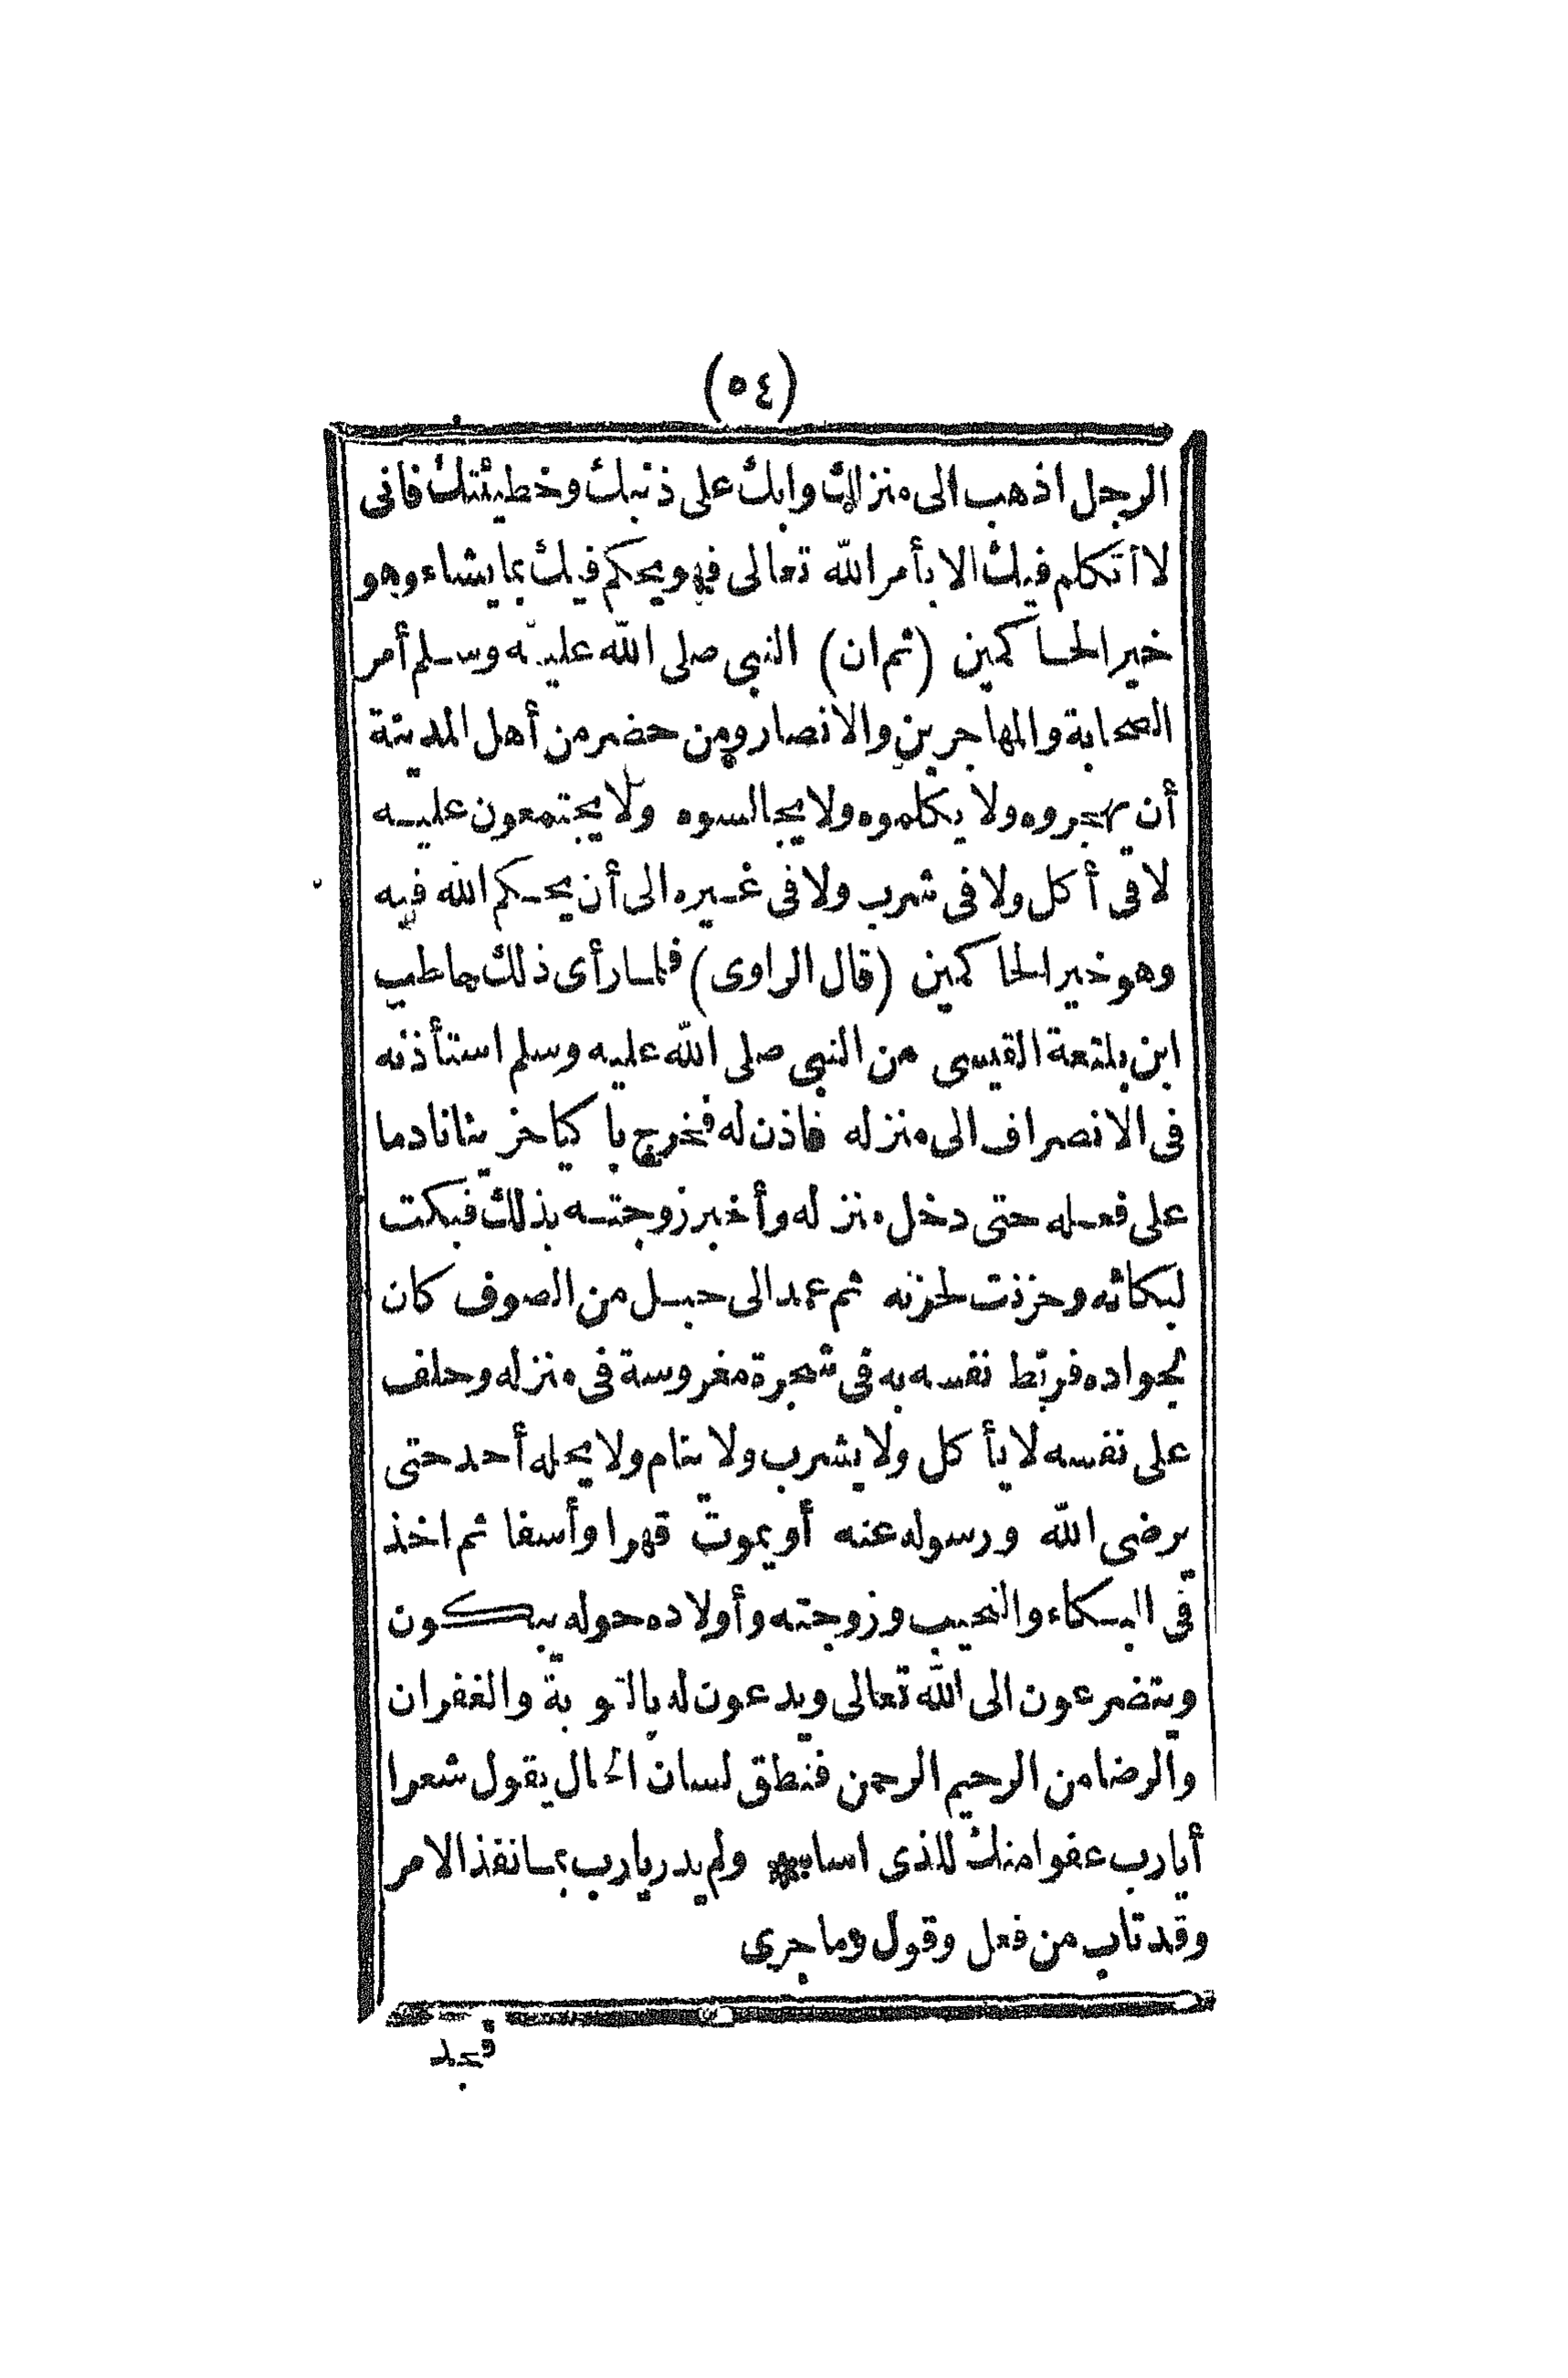 (٥٤)
الرجل اذهب الى منزلك وابك على ذنبك وخطيئتك فانى
لا أتكلم فيك الا بأمر الله تعالى فهو يحكم فيك بما يشاء وهو
خير الحاكمين (ثم ان) النبى صلى الله عليه وسلم أمر
الصحابة والمهاجرين والانصار ومن حضر من أهل المدينة
أن يهجروه ولا يكلموه ولا يجالسوه ولا يجتمعون عليه
لا فى أكل ولا فى شرب ولا فى غيره الى أن يحكم الله فيه
وهو خير الحاكمين (قال الراوى) فلما رأى ذلك حاطب
ابن بلتعة القيسى من النبى صلى الله عليه وسلم استأذنه
فى الانصراف الى منزله فاذن له فخرج باكيا حزينا نادما
على فعله حتى دخل منزله وأخبر زوجته بذلك فبكت
لبكائه وحزنت لحزنه ثم عمد الى حبل من الصوف كان
لجواده فربط نفسه به فى شجرة مغروسة فى منزله وحلف
على نفسه لا يأكل ولا يشرب ولا ينام ولا يحله أحد حتى
يرضى الله ورسوله عنه أو يموت قهرا وأسفا ثم اخذ
فى البكاء والنحيب وزوجته وأولاده حوله يبكون
ويتضرعون الى الله تعالى ويدعون له بالتوبة والغفران
والرضا من الرحيم الرحمن فنطق لسان الحال يقول شعرا
أيا رب عفوا منك للذى اسا * ولم يدر يارب بما نفذ الامر
وقد تاب من فعل وقول وما جرى
فجد